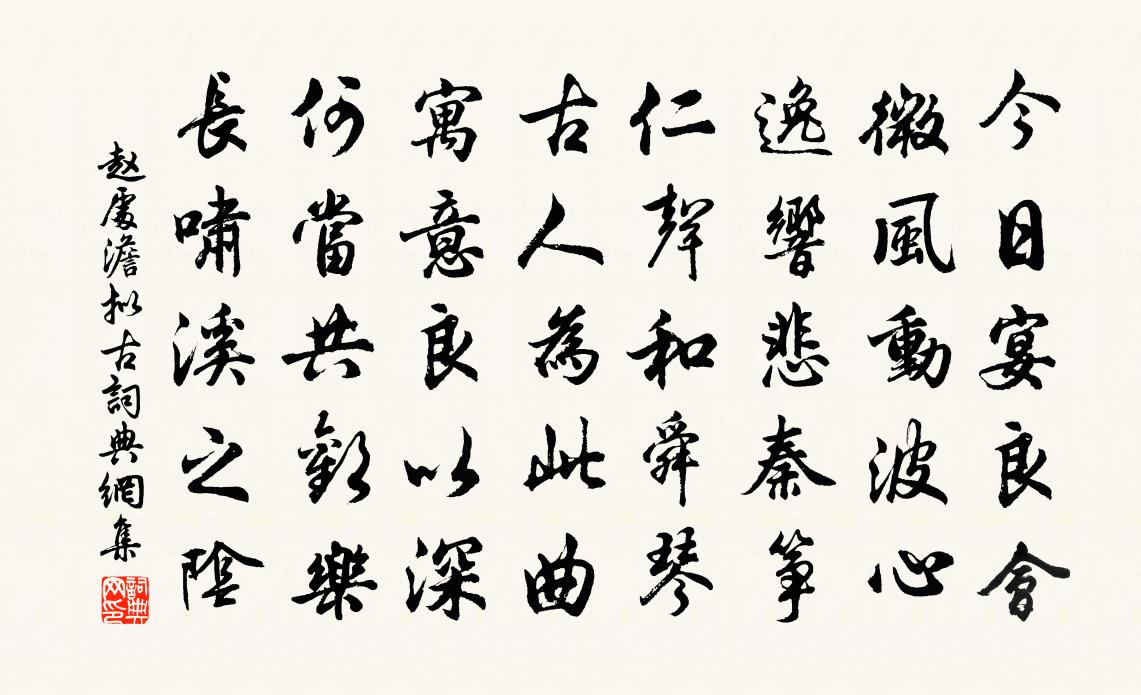 今日宴良會
微風動波心
逸響悲秦箏
仁聲和舜琴
古人為此曲
寓意良以深
何當共歡樂
長嘯溪之陰
赵處澹拟古詞典網集
詞典網印